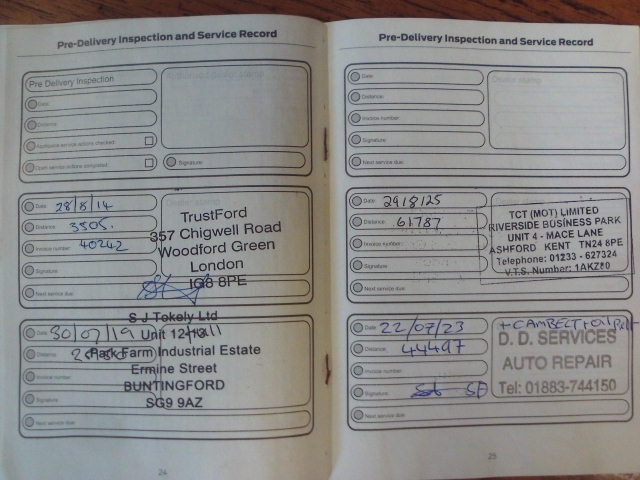 Pre-Delivery Inspection and Service Record
Pre Delivery Inspection
Authorised dealer stamp
Date:
Distance:
Additional service actions checked:
Open service actions completed:
Signature:
Date: 28/8/14
Distance: 3505.
Invoice number: 40242
Signature:
Next service due:
Dealer stamp
TrustFord
357 Chigwell Road
Woodford Green
London
IG8 8PE
Date: 30/07/19
Distance:
Invoice number:
Signature:
Next service due:
S J Tokely Ltd
Unit 12+13
Park Farm Industrial Estate
Ermine Street
BUNTINGFORD
SG9 9AZ
24
Pre-Delivery Inspection and Service Record
Date:
Distance:
Invoice number:
Signature:
Next service due:
Dealer stamp
Date: 29/8/25
Distance: 61787
Invoice number:
Signature:
Next service due:
TCT (MOT) LIMITED
RIVERSIDE BUSINESS PARK
UNIT 4 - MACE LANE
ASHFORD KENT TN24 8PE
Telephone: 01233 - 627324
V.T.S. Number: 1AKZ80
Date: 22/07/23
Distance: 44497
Invoice number:
Signature:
Next service due:
+ CAMBELT + Oil
D. D. SERVICES
AUTO REPAIR
Tel: 01883-744150
25